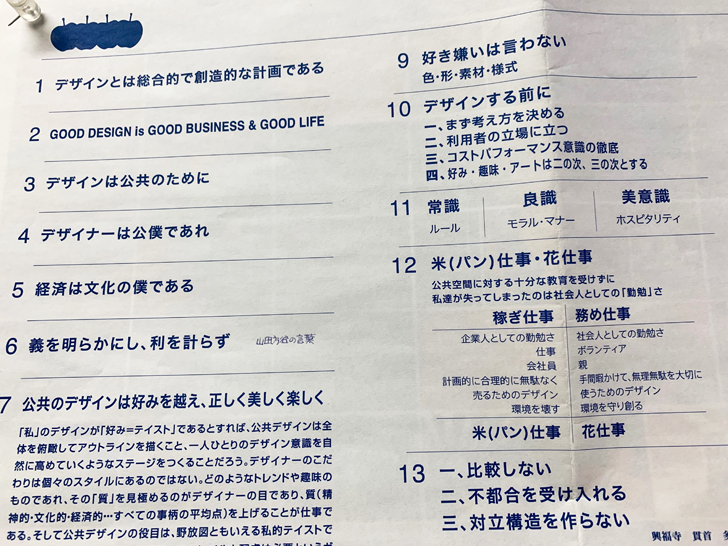 1 デザインとは総合的で創造的な計画である
2 GOOD DESIGN is GOOD BUSINESS & GOOD LIFE
3 デザインは公共のために
4 デザイナーは公僕であれ
5 経済は文化の僕である
6 義を明らかにし、利を計らず 山田方谷の言葉
7 公共のデザインは好みを越え、正しく美しく楽しく
「私」のデザインが「好み=テイスト」であるとすれば、公共デザインは全
体を俯瞰してアウトラインを描くこと、一人ひとりのデザイン意識を自
然に高めていくようなステージをつくることだろう。デザイナーのこだ
わりは個々のスタイルにあるのではない。どのようなトレンドや趣味の
ものであれ、その「質」を見極めるのがデザイナーの目であり、質(精
神的・文化的・経済的…すべての事柄の平均点)を上げることが仕事で
ある。そして公共デザインの役目は、野放図ともいえる私的テイストで
9 好き嫌いは言わない
色・形・素材・様式
10 デザインする前に
一、まず考え方を決める
二、利用者の立場に立つ
三、コストパフォーマンス意識の徹底
四、好み・趣味・アートは二の次、三の次とする
11 常識 良識 美意識
ルール モラル・マナー ホスピタリティ
12 米(パン)仕事・花仕事
公共空間に対する十分な教育を受けずに
私達が失ってしまったのは社会人としての「勤勉」さ
稼ぎ仕事 務め仕事
企業人としての勤勉さ 社会人としての勤勉さ
仕事 ボランティア
会社員 親
計画的に合理的に無駄なく 手間暇かけて、無理無駄を大切に
売るためのデザイン 使うためのデザイン
環境を壊す 環境を守り創る
米(パン)仕事 花仕事
13 一、比較しない
二、不都合を受け入れる
三、対立構造を作らない
興福寺 貫首